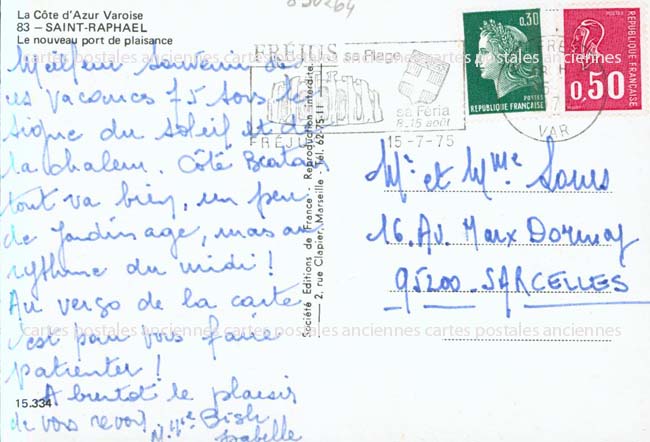 La Côte d'Azur Varoise
83 – SAINT-RAPHAEL
Le nouveau port de plaisance
Meilleur souvenir de
vacances 75 sous le
signe du soleil et de
la chaleur. Côté
tout va bien, un peu
de jardinage, mais au
rythme du midi !
Au verso de la carte
c'est pour vous faire
patienter !
A bientôt le plaisir
de vous revoir.
Isabelle
15.334
Société Editions de France - Reproduction interdite.
2, rue Clapier, Marseille - Tél. 62-75-11
FRÉJUS sa Plage
sa Féria
8-15 août
FRÉJUS
15-7-75
VAR
0,30
POSTES
REPUBLIQUE FRANÇAISE
REPUBLIQUE FRANÇAISE
0,50
Mr et Mme
16. Av. Marx Dormoy
95200 - SARCELLES
cartes postales anciennes cartes postales anciennes cartes postales anciennes
cartes postales anciennes cartes postales anciennes cartes postales anciennes